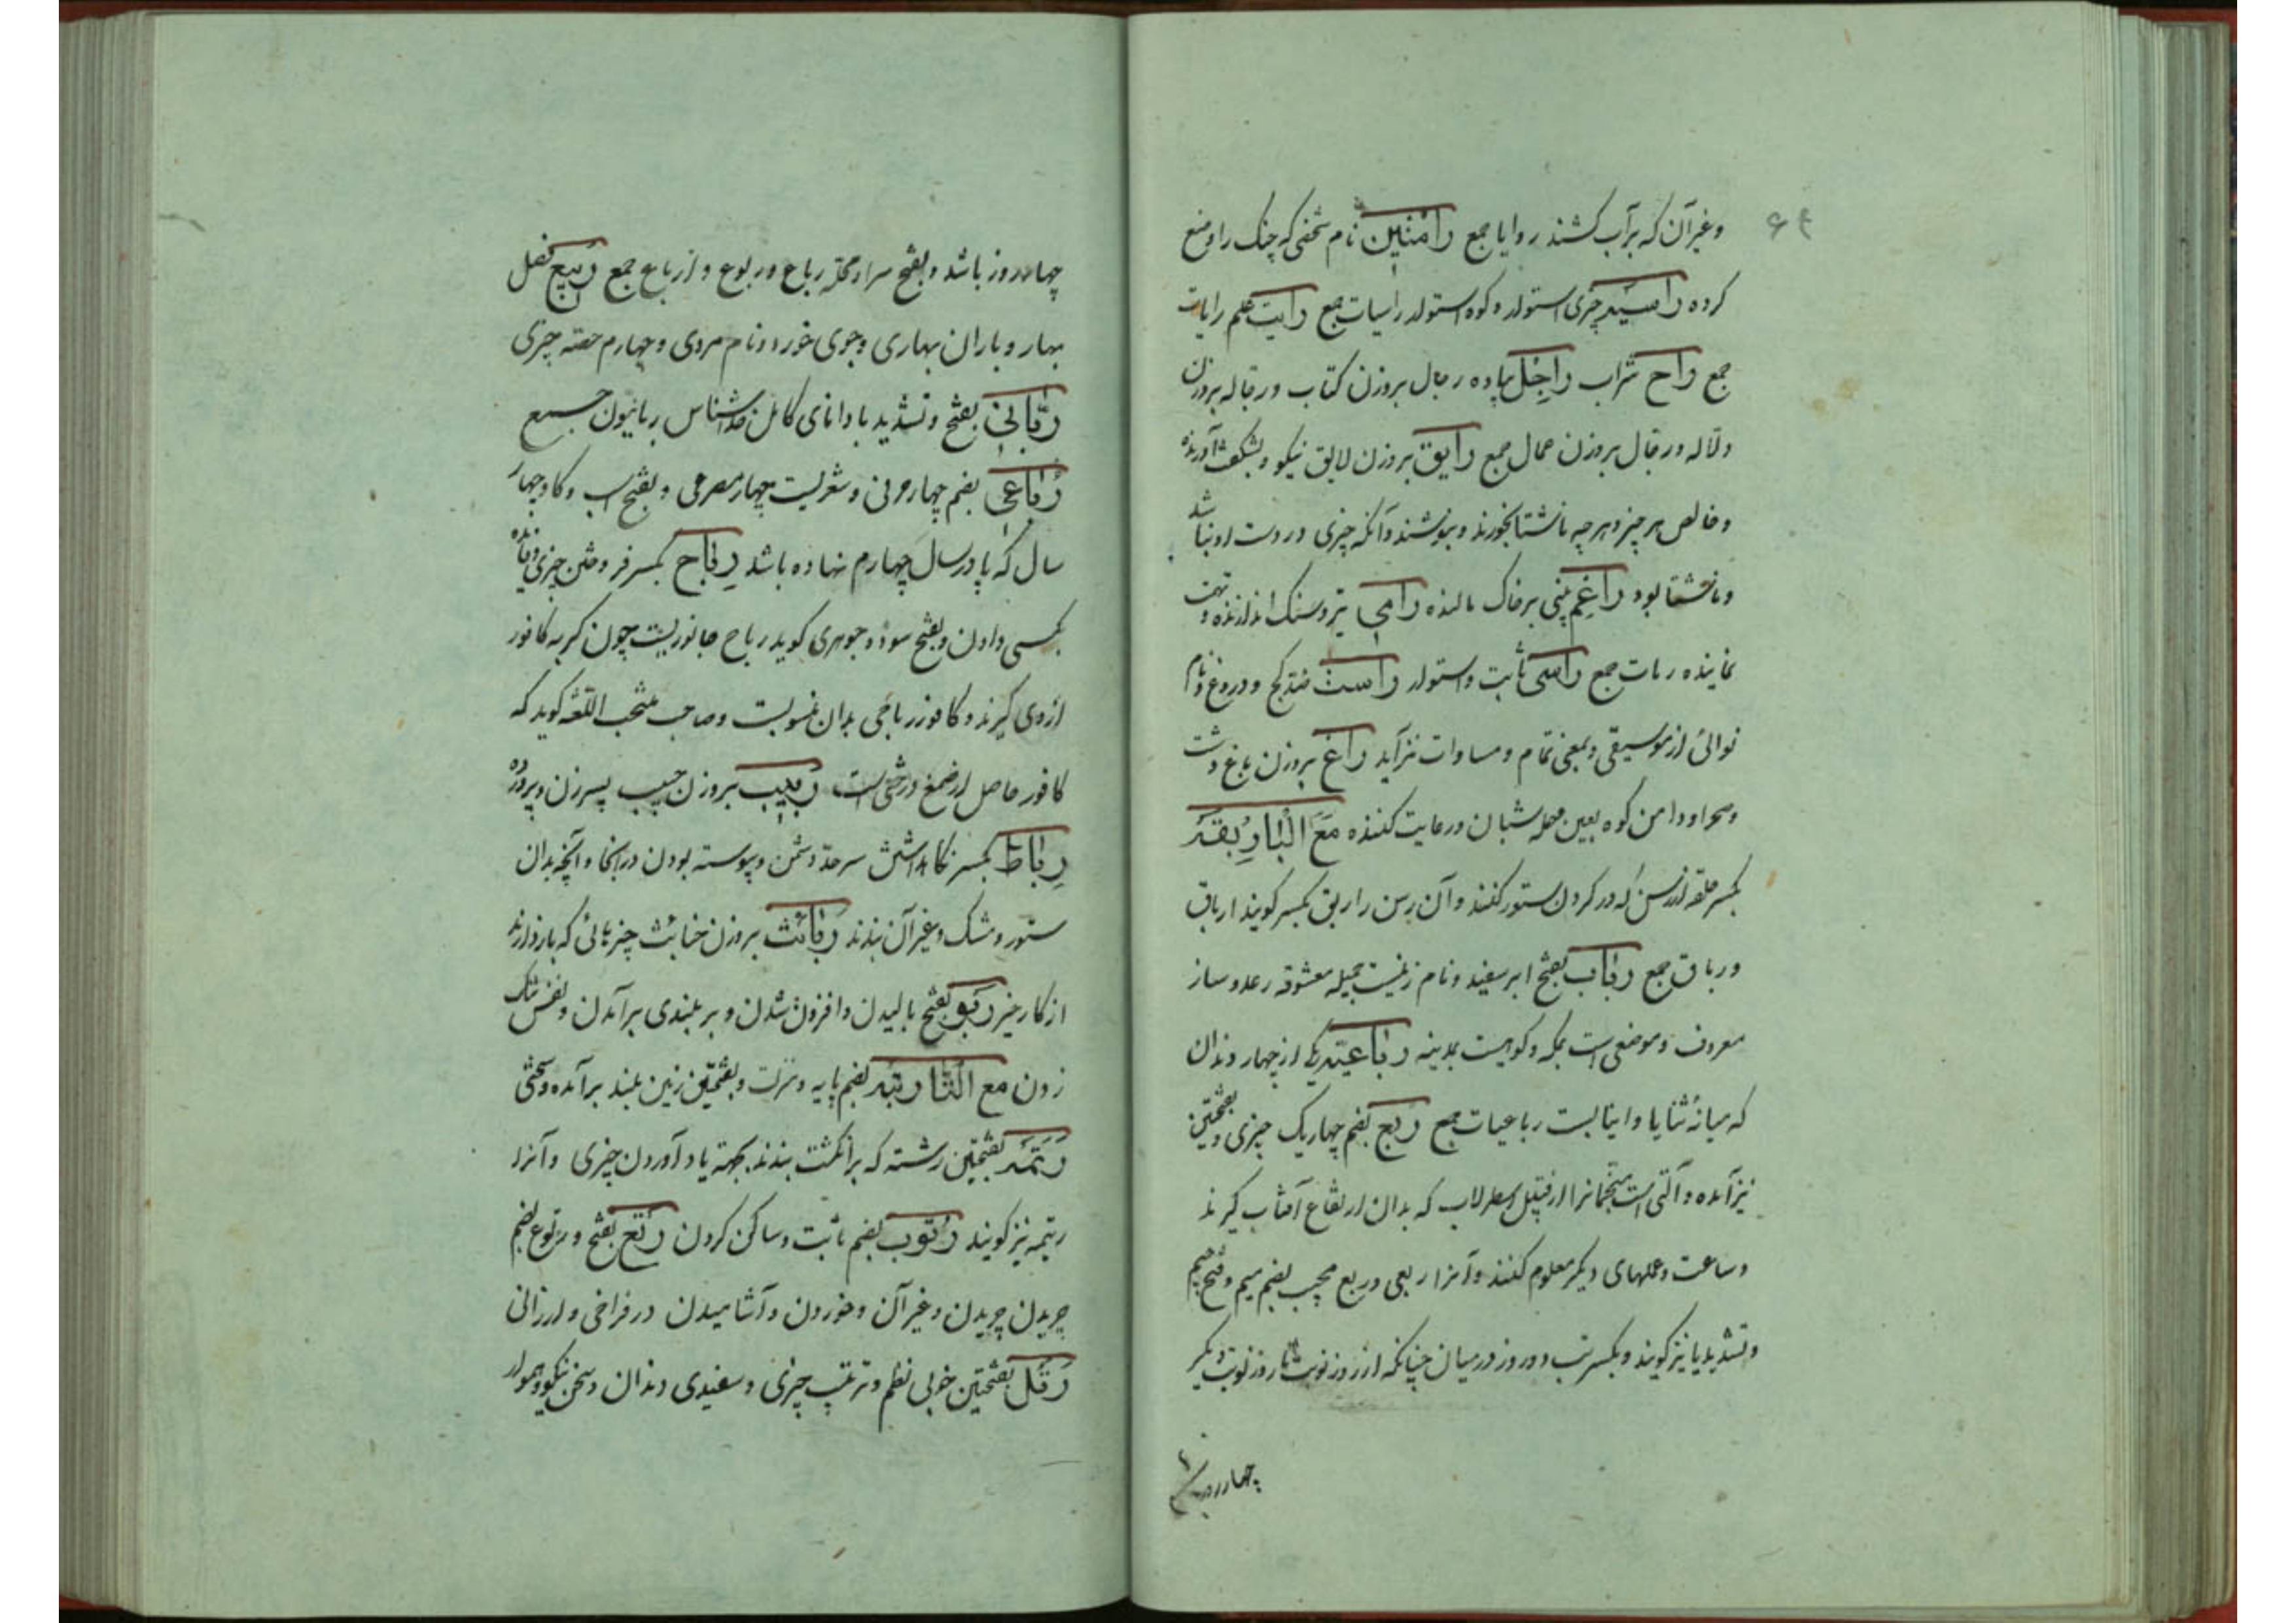 ۶۴
وغیر آن که بر آب کشند روایا جمع رامتین نام شخصی که چنک را وضع
کرده راسیه چیزی استوار و کوه استوار راسیات جمع رایت علم رایات
جمع راح شراب راجل پیاده رجال بروزن کتاب و رجاله بروزن
دلاله و رجال بروزن عمال جمع رایق بروزن لایق نیکو و بشکفت آورنده
و خالص هر چیز و هر چه ناشتا بخورند و بنوشند و آنکه چیزی در دست او نباشد
و ناشتا بود راغم بینی بر خاک مالنده رامی تیر و سنک اندازنده و تهمت
نماینده رمات جمع راسی ثابت و استوار راست ضد کج و دروغ و نام
نوائی از موسیقی و بمعنی تمام و مساوات نیز آید راغ بروزن باغ دشت
و صحرا و دامن کوه بعین مهمله شبان و رعایت کننده مع البا ربقه
بکسر حلقه از رسن که در کردن ستور کنند و آن رسن را ربق بکسر کویند ارباق
و رباق جمع رباب بفتح ابر سفید و نام زنیست جمیله معشوقه رعد و ساز
معروف و موضعی است بمکه و کوهیست بمدینه رباعیه یکی از چهار دندان
که میانه ثنایا و انیابست رباعیات جمع ربع بضم چهار یک چیزی و بضمتین
نیز آمده و آلتی است منجمانرا از قبیل اسطرلاب که بدان ارتفاع آفتاب کیرند
و ساعت و عملهای دیکر معلوم کنند و آنرا ربعی و ربع مجیب بضم میم و فتح جیم
و تشدید یا نیز کویند و بکسر تب دو روز در میان چنانکه از روز نوبت تا روز نوبت دیکر
چهار روز
چهار روز باشد و بفتح سرا و محله رباع و ربوع و ارباع جمع ربیع فصل
بهار و باران بهاری و جوی خورد و نام مردی و چهارم حصه چیزی
ربانی بفتح و تشدید با دانای کامل خداشناس ربانیون جمع
رباعی بضم چهار حرفی و شعریست چهار مصرعی و بفتح اسب و کاو چهار
سال که پا در سال چهارم نهاده باشد رباح بکسر فروختن چیزی و فائده
بکسی دادن و بفتح سود و جوهری کوید رباح جانوریست چون کربه کافور
از وی کیرند و کافور رباحی بدان منسوبست و صاحب منتخب اللغه کوید که
کافور حاصل از صمغ درختی است ربیب بروزن حبیب پسر زن و پرورده
رباط بکسر نکاهداشتن سرحد دشمن و پیوسته بودن در انجا و آنچه بدان
ستور و مشک و غیر آن بندند ربائث بروزن خبائث چیزهائی که بازدارند
از کار خیر ربو بفتح بالیدن و افزون شدن و بر بلندی برآمدن و نفس تنک
زدن مع التا رتبه بضم پایه و منزلت و بفتحتین زمین بلند برآمده و سختی
رتمه بفتحتین رشته که بر انکشت بندند بجهة یاد آوردن چیزی و آنرا
رتیمه نیز کویند رتوب بضم ثابت و ساکن کردن رتع بفتح و رتوع بضم
چریدن چریدن و غیر آن و خوردن و آشامیدن در فراخی و ارزانی
رتل بفتحتین خوبی نظم و ترتیب چیزی و سفیدی دندان و سخن نیکو و هموار